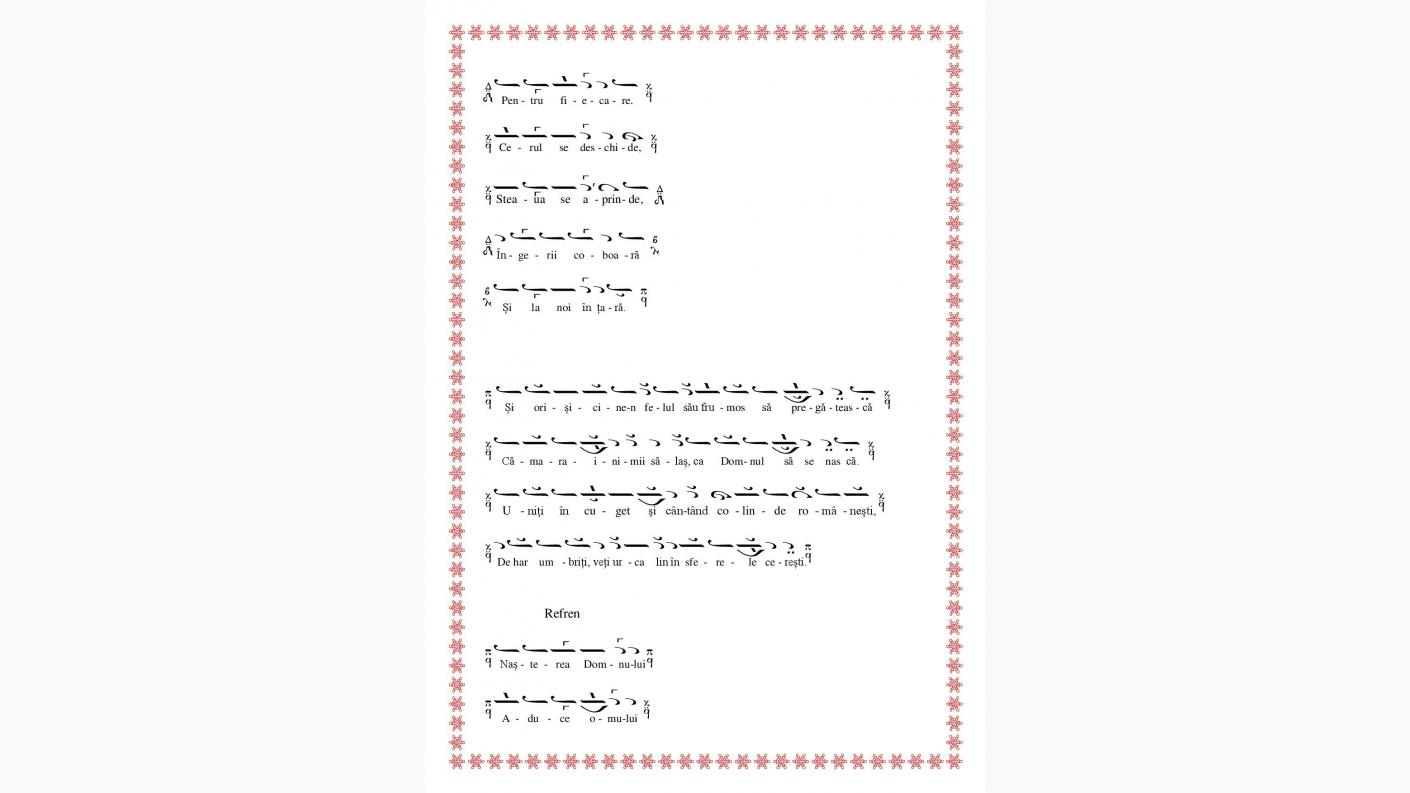 Pen - tru fi - e - ca - re.
Ce - rul se des - chi - de,
Stea - ua se a - prin - de,
În - ge - rii co - boa - ră
Și la noi în ța - ră.
Și ori - și - ci - ne-n fe - lul său fru - mos să pre - gă - teas - că
Că - ma - ra - i - ni - mii să - laș, ca Dom - nul să se nas că.
U - niți în cu - get și cân - tând co - lin - de ro - mâ - nești,
De har um - briți, veți ur - ca lin în sfe - re - le ce - rești.
Refren
Naș - te - rea Dom - nu - lui
A - du - ce o - mu - lui